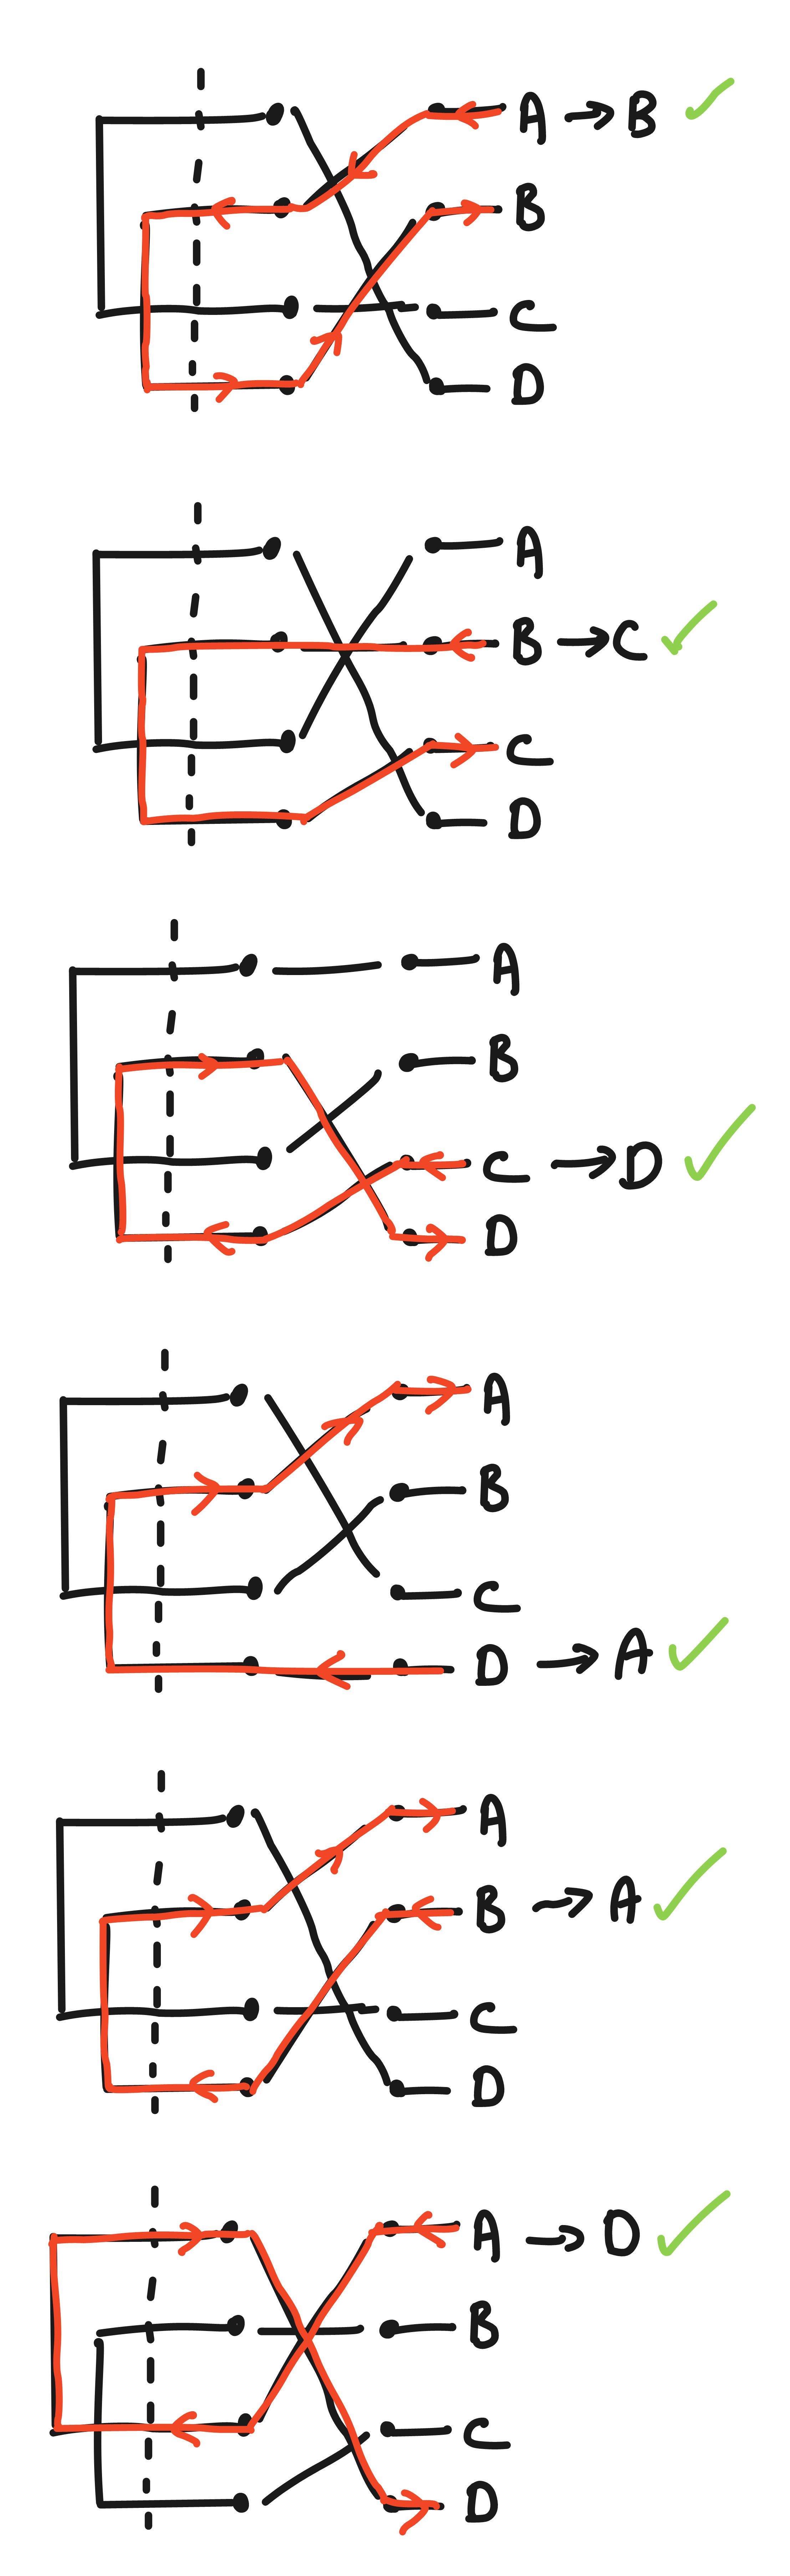 A → B ✓
B
C
D
A
B → C ✓
C
D
A
B
C → D ✓
D
A
B
C
D → A ✓
A
B → A ✓
C
D
A → D ✓
B
C
D